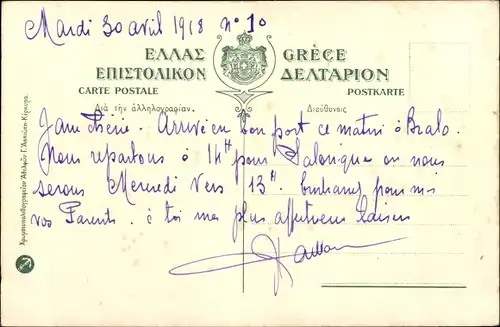 Mardi 30 avril 1918 n° 10
ΕΛΛΑΣ GRÈCE
ΕΠΙΣΤΟΛΙΚΟΝ ΔΕΛΤΑΡΙΟΝ
CARTE POSTALE POSTKARTE
Διὰ τὴν ἀλληλογραφίαν. Διεύθυνσις
chérie. Arrivé en bon port ce matin à Bralo.
Nous repartons à 14H pour Salonique où nous
serons Mercredi vers 13H. Embrasse pour moi
vos Parents. à toi mes plus affectueux baisers